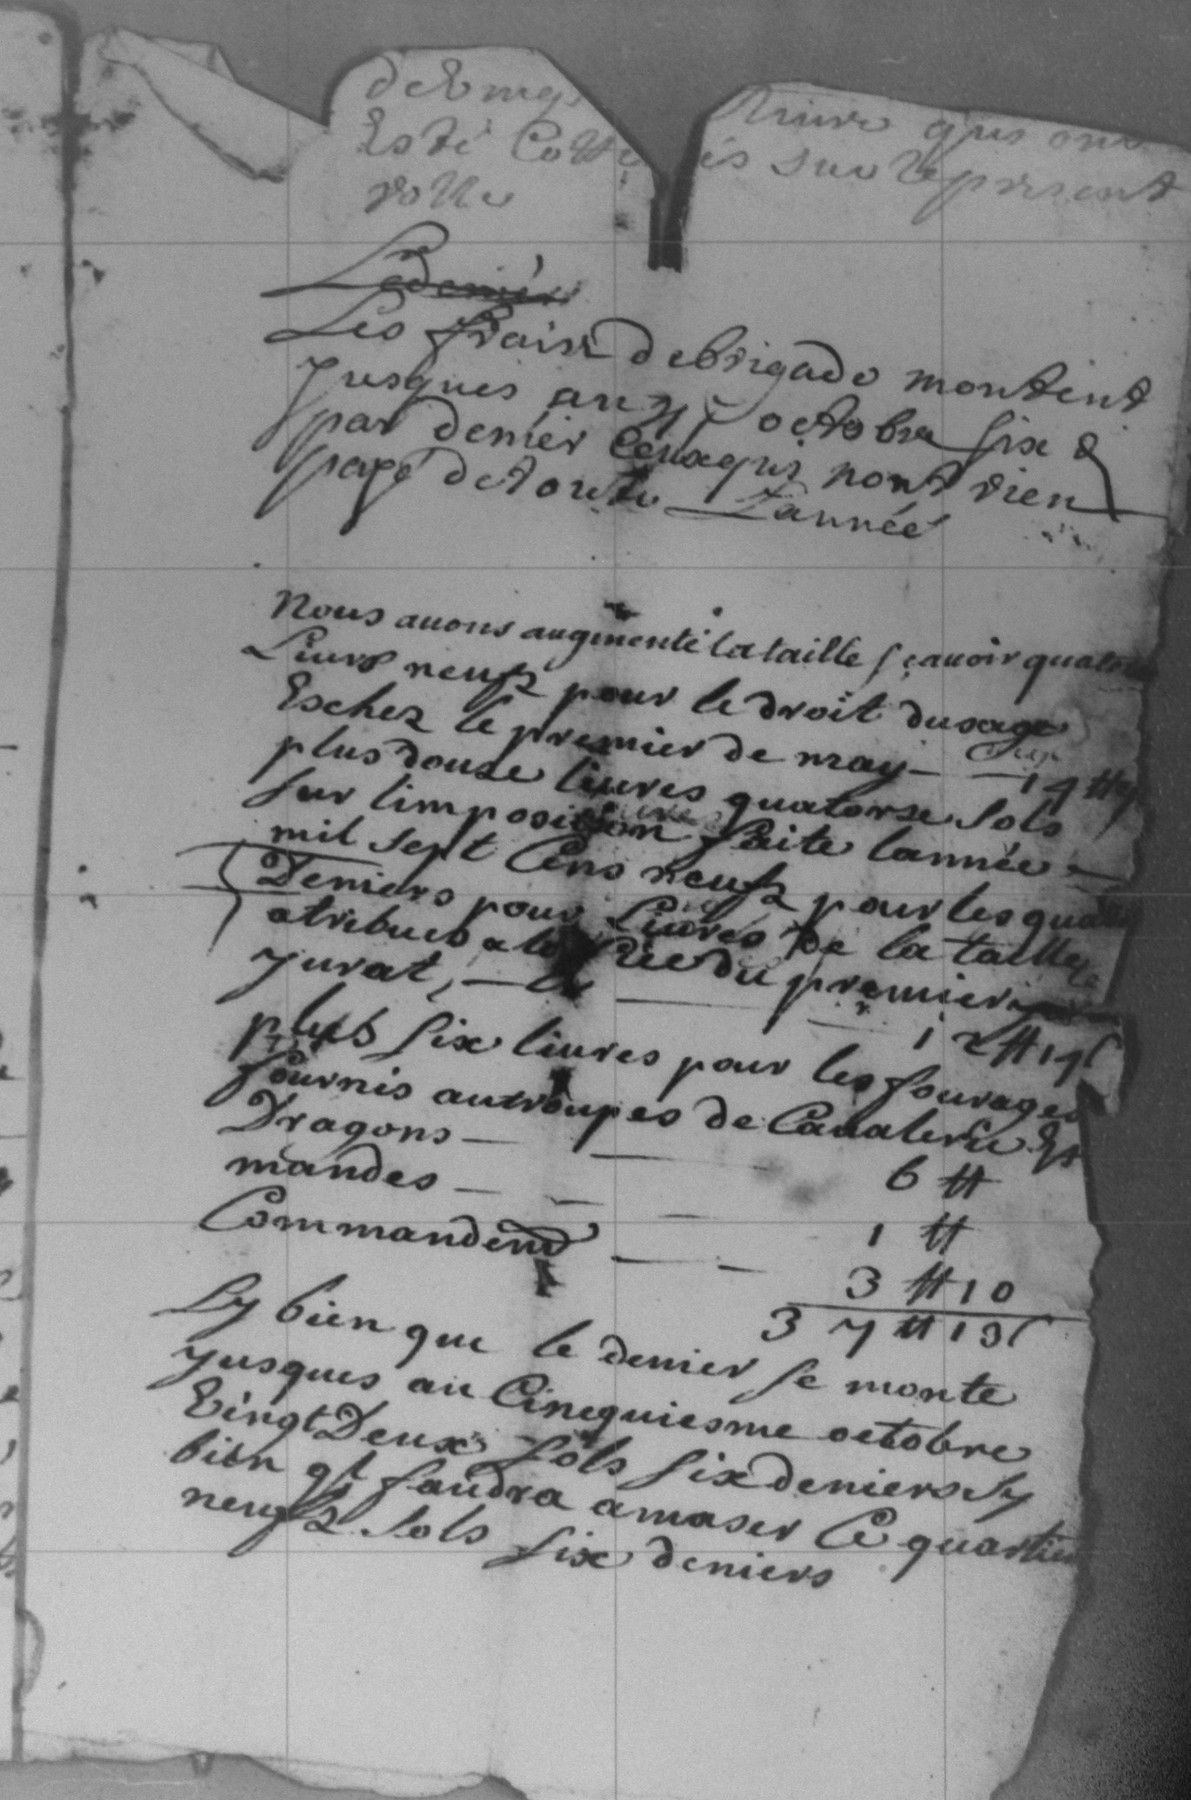 riure qui ont
Esté Cottizés sur le present
rolle
Ledenier
Les fraix debrigade montent
Jusques au octobre six d
par denier Ceuxqui nont rien
payé detoute Lannée
Nous auons augmenté la taille sçauoir quatorse
Liures neufz pour le droit dusage
Eschez le premier de may 14 #
plus douze liures quatorze sols
sur limposition faite lannée
mil sept Cens neufz pour les quatre
Deniers pour Liures de la taille
atribues a du premier
Jurat, 12 # 14 s
plus six liures pour les fourages
fournis autroupes de Caualerie Et
Dragons 6 #
mandes 1 #
Commandend 3 # 10
37 # 13 s
Sy bien que le denier se monte
Jusques au Cinequiesme octobre
Vingt Deux sols six deniers Sy
bien ql faudra amaser Ce quartier
neufz sols six deniers